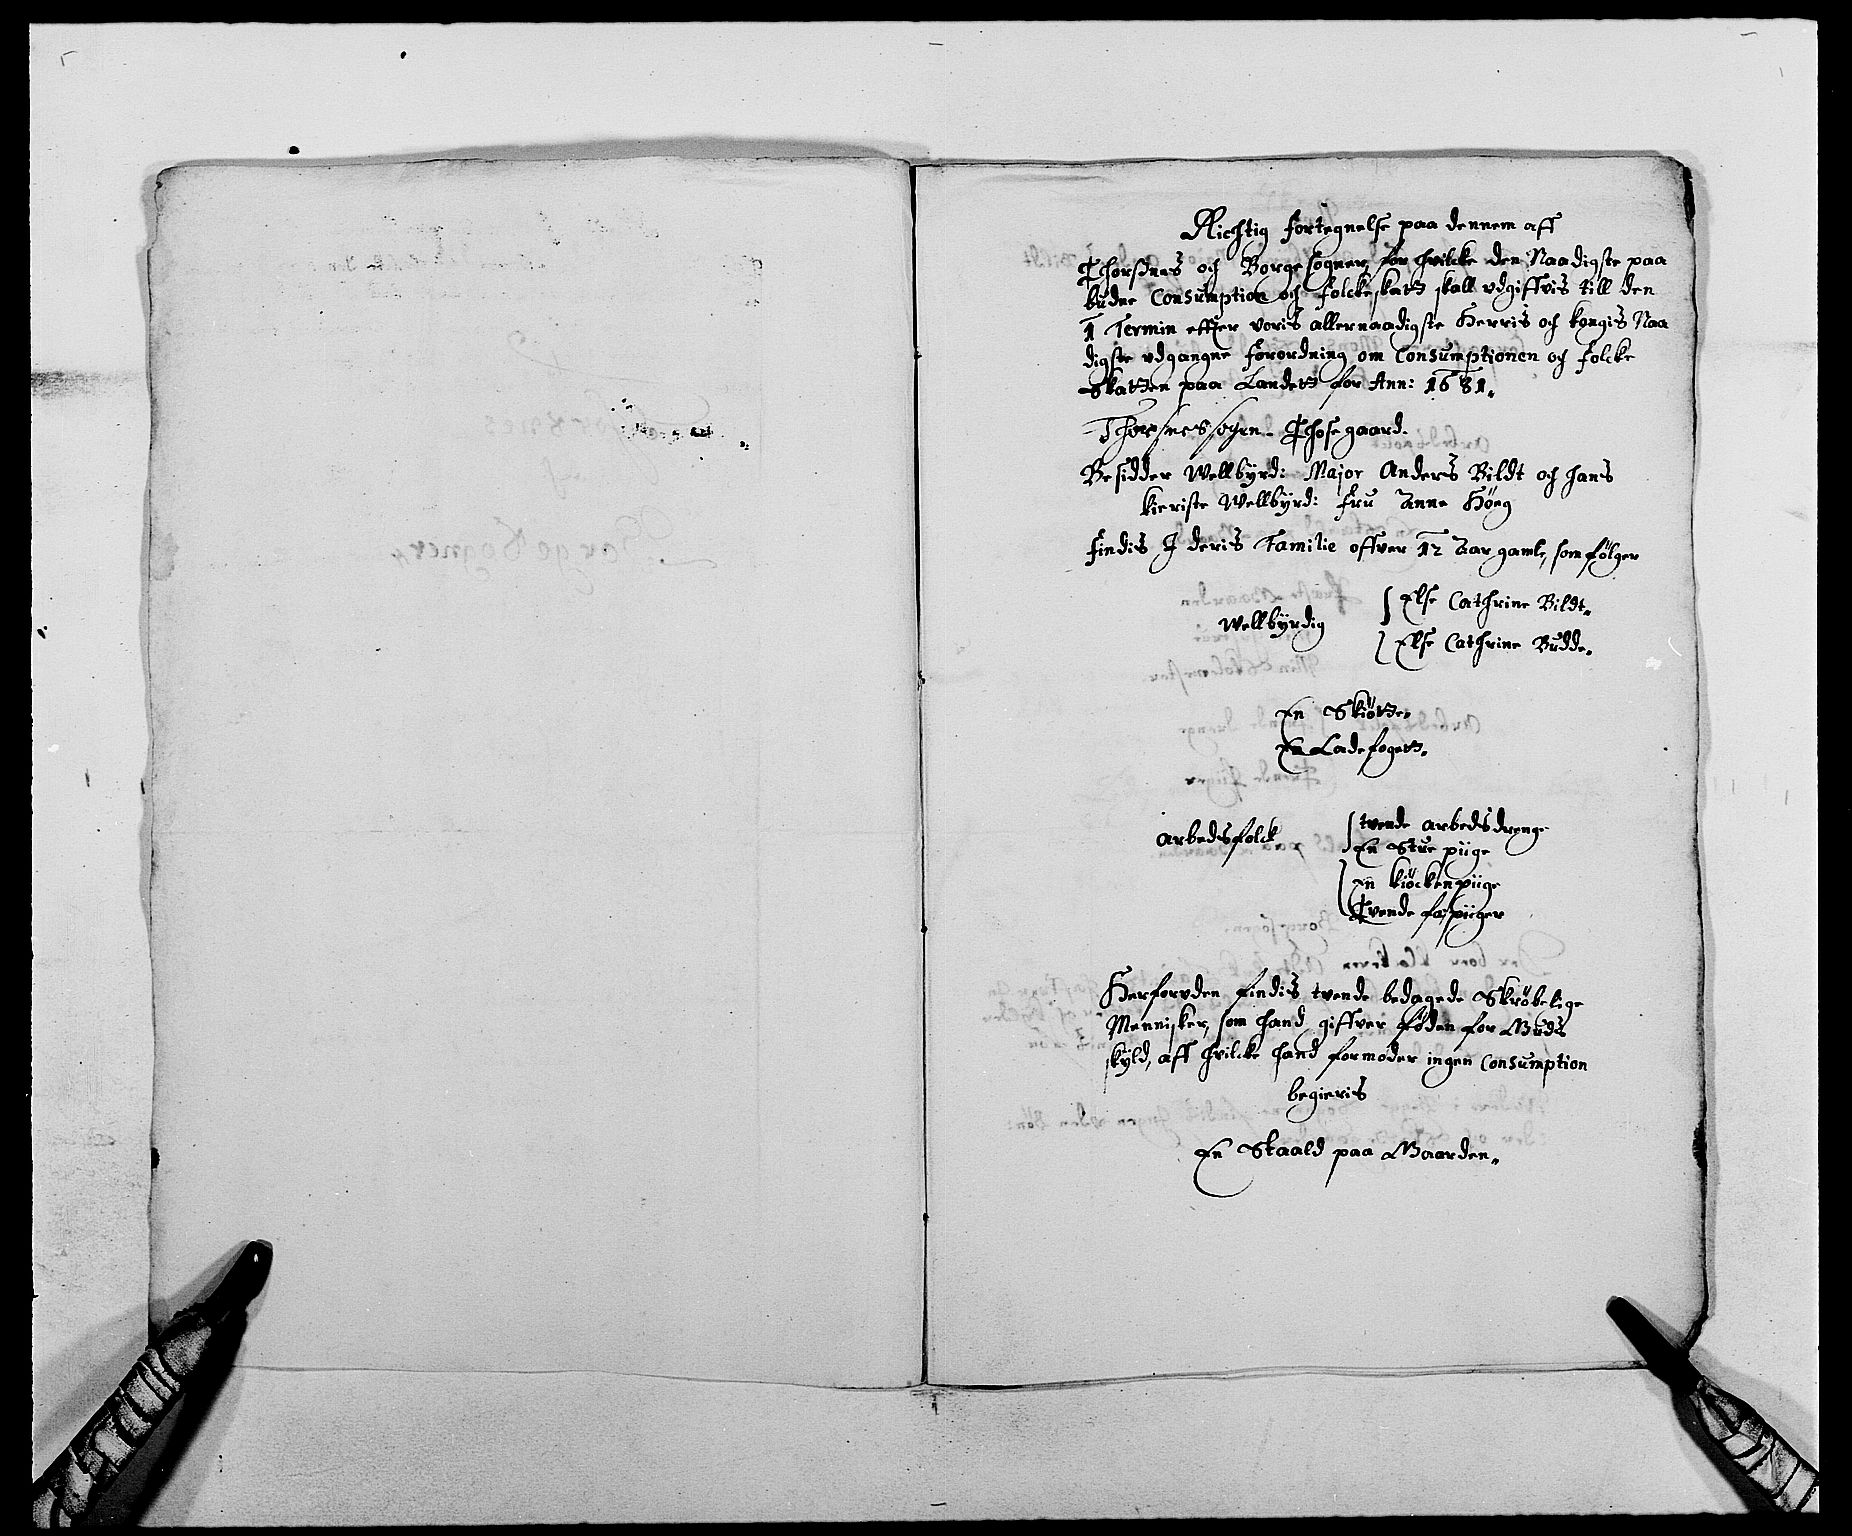 Richtig fortegnelse paa dennem aff
Thorsnes och Borge sogner, for hvilcke den Naadigste paa
budne Consumption och folckeskatt skall udgiffvis till den
1 Termin effter voris allernaadigste Herris och kongis Naa
digste udgangne forordning om Consumptionen och folcke
Skatten paa Landett for Ann: 1681.
Thorsnes sogn. Thosegaard.
Besidder Wellbyrd: Major Anders Bildt och hans
kieriste Wellbyrd: Fru Anne Høeg
findis J deris Familie offver 12 Aar gamle, som følger
Wellbyrdig
Else Cathrine Bildt.
Else Cathrine Budde.
En Skiötte.
En Ladefogett.
Arbedsfolck
tvende arbedsdrenge
En Stue piige
En kiöckenpiige
Tvende fæpiiger
Herforuden findis tvende bedagede Skröbelige
Mennisker, som hand giffver føden for Guds
skÿld, aff hvilcke hand formoder ingen Consumption
begieris
En Staald paa Gaarden.